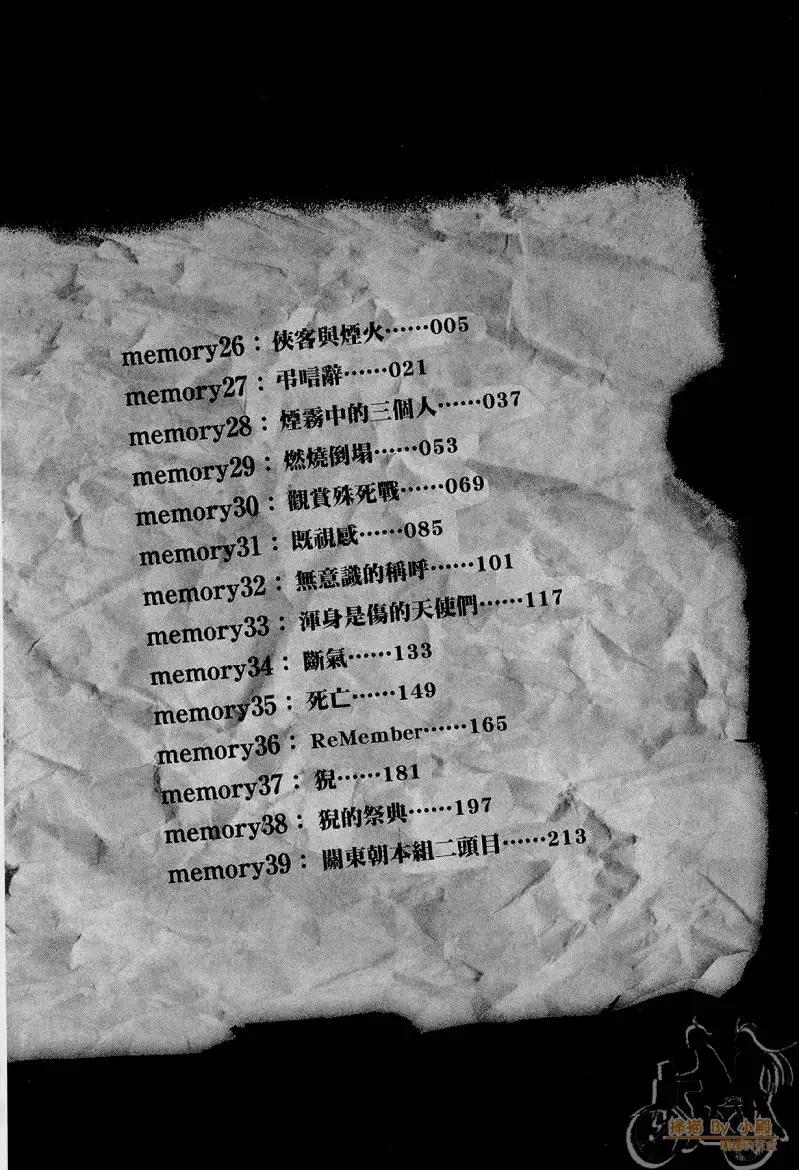 memory26：俠客與煙火……005
memory27：弔唁辭……021
memory28：煙霧中的三個人……037
memory29：燃燒倒塌……053
memory30：觀賞殊死戰……069
memory31：既視感……085
memory32：無意識的稱呼……101
memory33：渾身是傷的天使們……117
memory34：斷氣……133
memory35：死亡……149
memory36：ReMember……165
memory37：猊……181
memory38：猊的祭典……197
memory39：關東朝本組二頭目……213
掃描 By 小殿